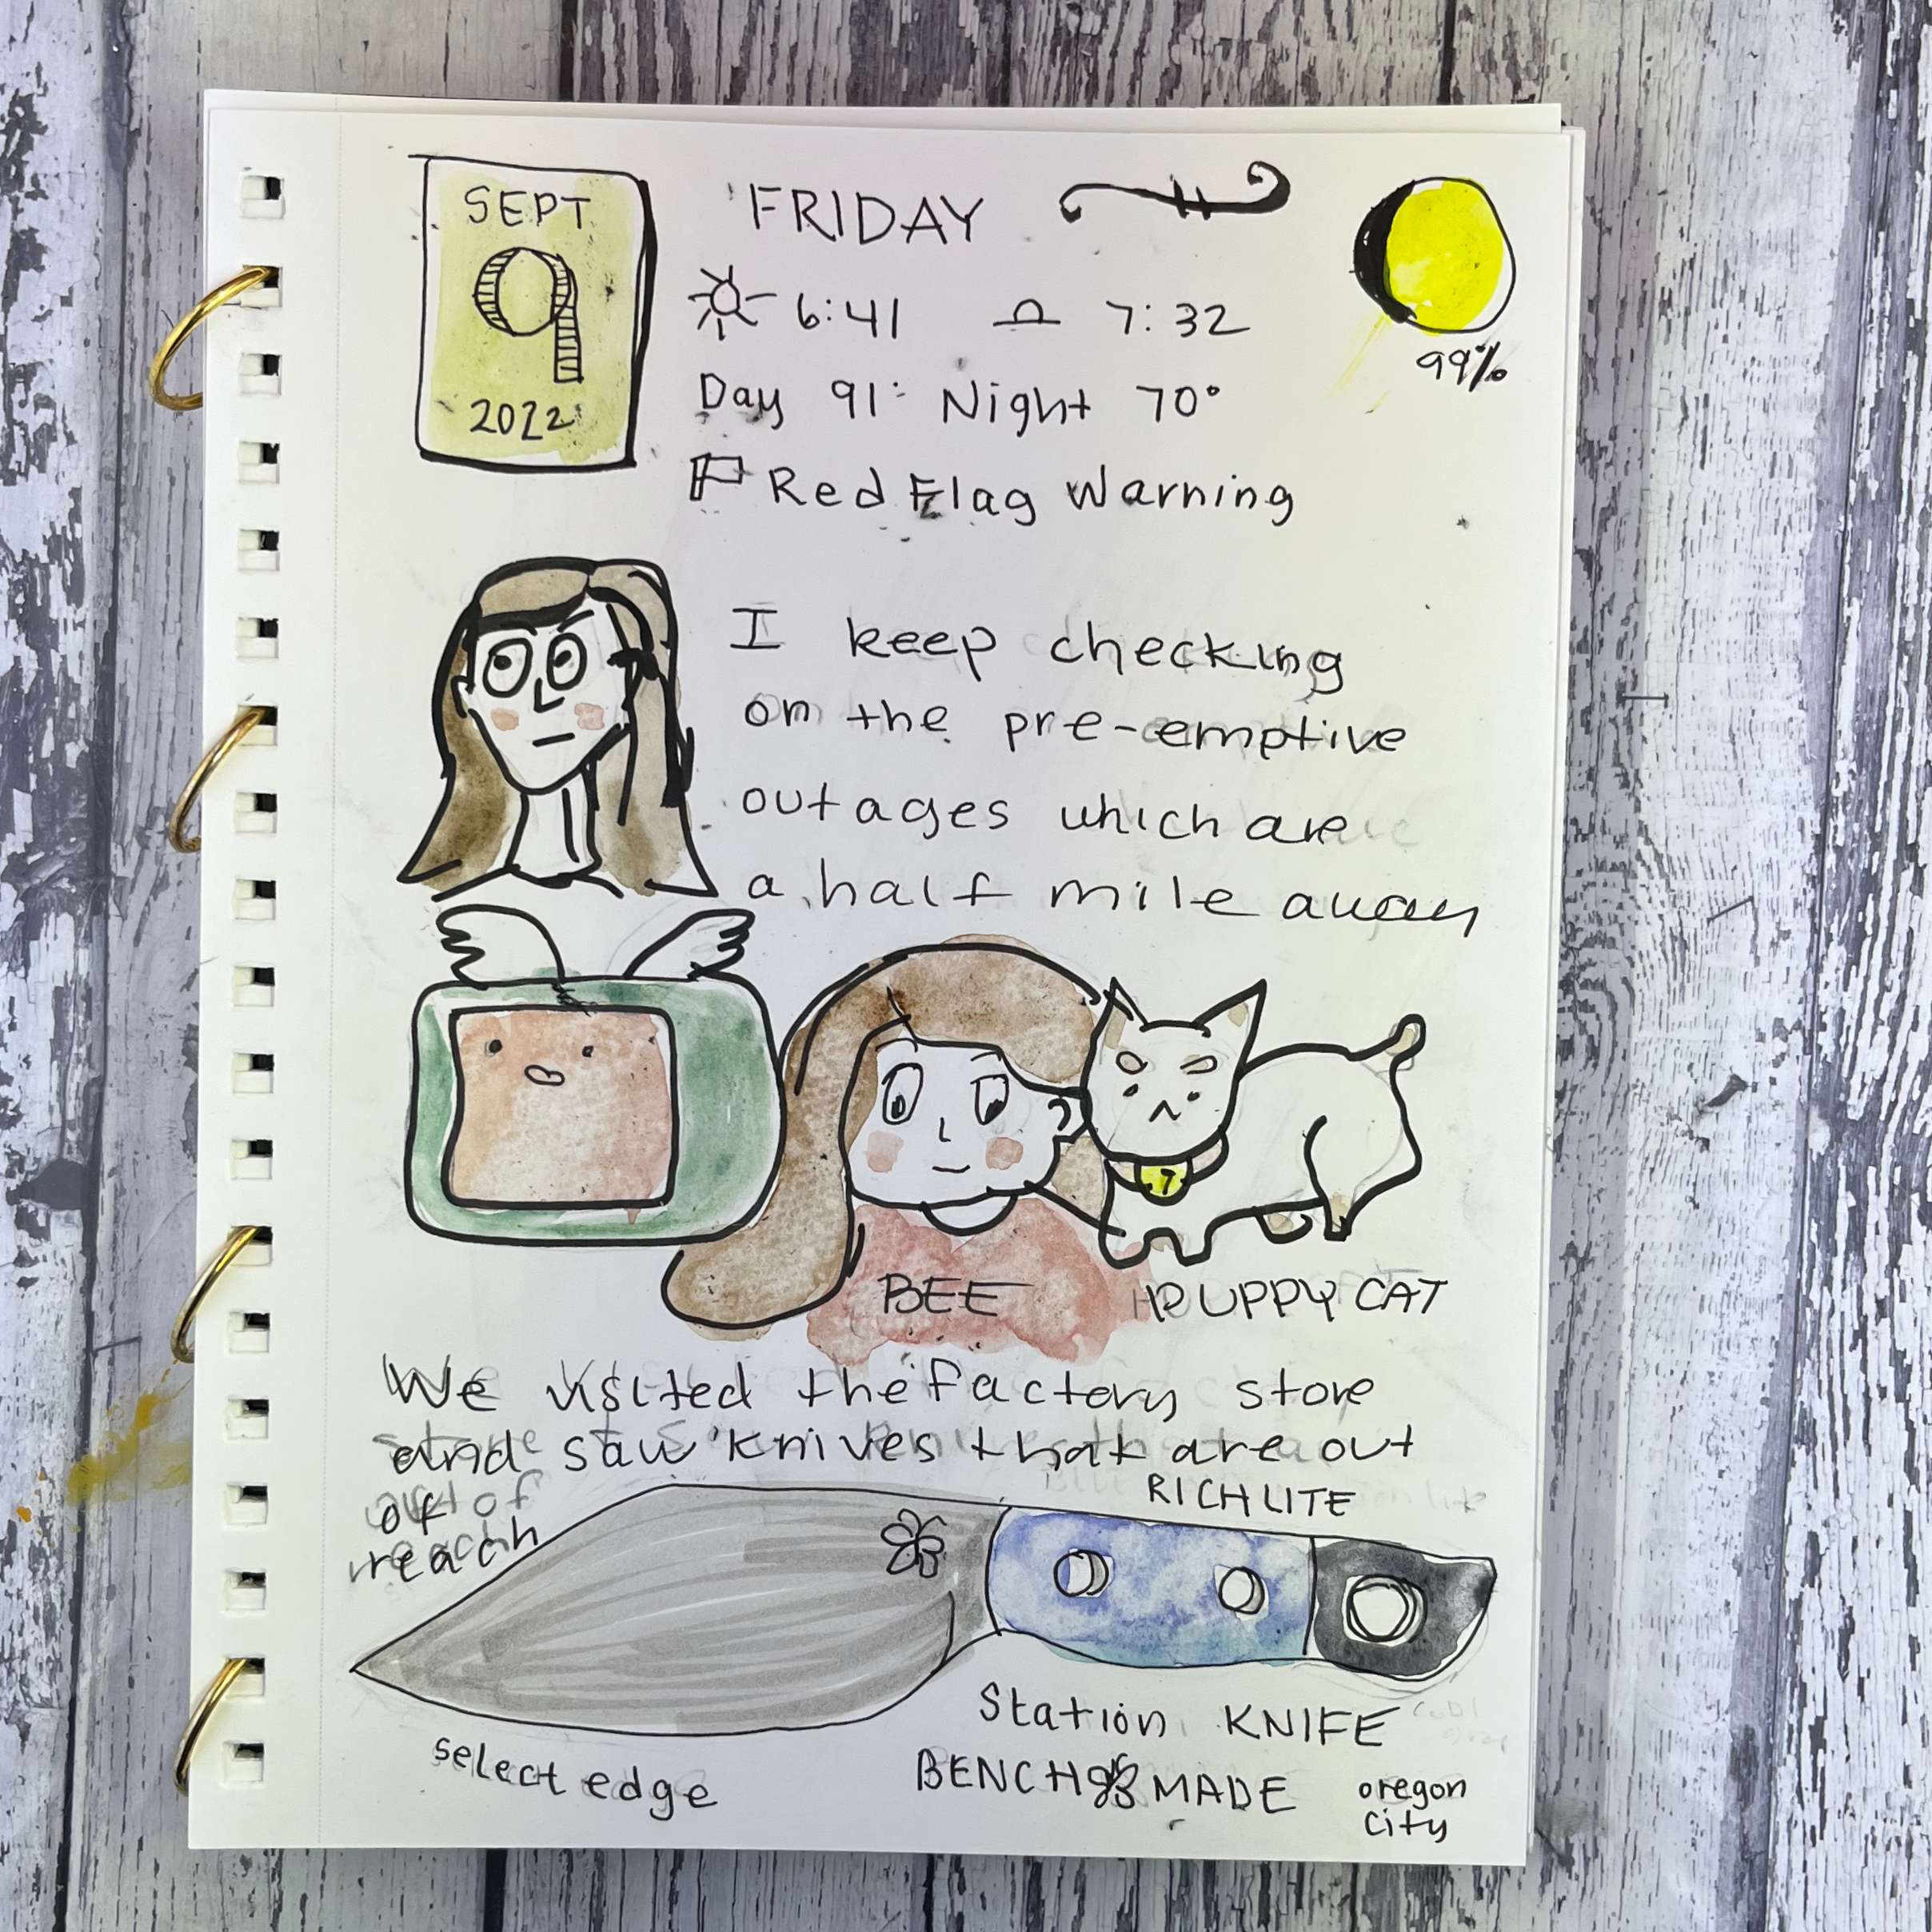 SEPT
9
2022
FRIDAY
6:41 7:32
Day 91° Night 70°
99%
Red Flag Warning
I keep checking
on the pre-emptive
outages which are
a half mile away
7
BEE PUPPYCAT
We visited the factory store
and saw knives that are out
of
reach
RICHLITE
Station KNIFE
select edge
BENCH MADE
oregon
city